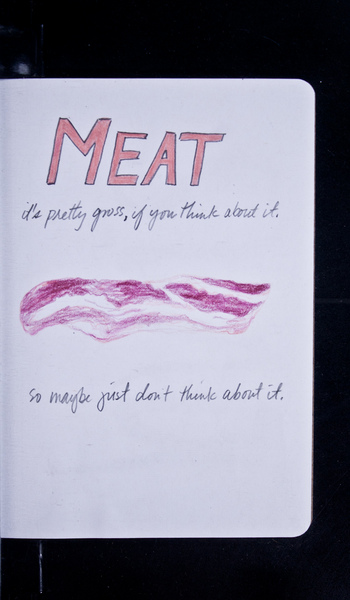 MEAT
it's pretty gross, if you think about it.
so maybe just don't think about it.